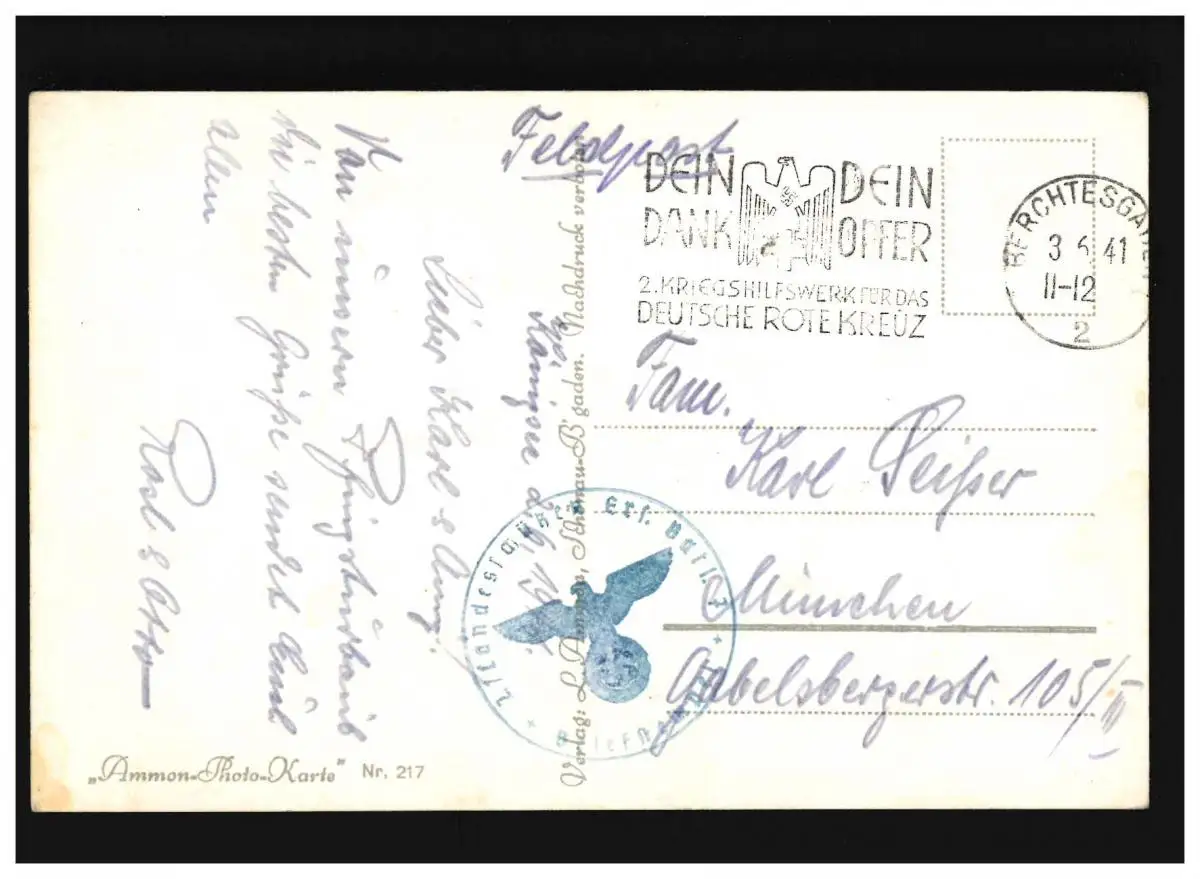 Feldpost
DEIN DEIN
DANK OPFER
2. KRIEGSHILFSWERK FÜR DAS
DEUTSCHE ROTE KREUZ
BERCHTESGADEN
3 6 41
11-12
2
Fam.
Karl Seißer
München
Gabelsbergerstr. 105/II
Königssee d. 2.6.1941.
Lieber Karl & Anny.
Von unserem
die besten Grüße sendet Euch
allen
Rosl & Otto
2./Landesschützen Ers. Batl. 7
Briefst
Verlag: L. Ammon, Schönau-B'gaden. Nachdruck verboten
„Ammon-Photo-Karte" Nr. 217